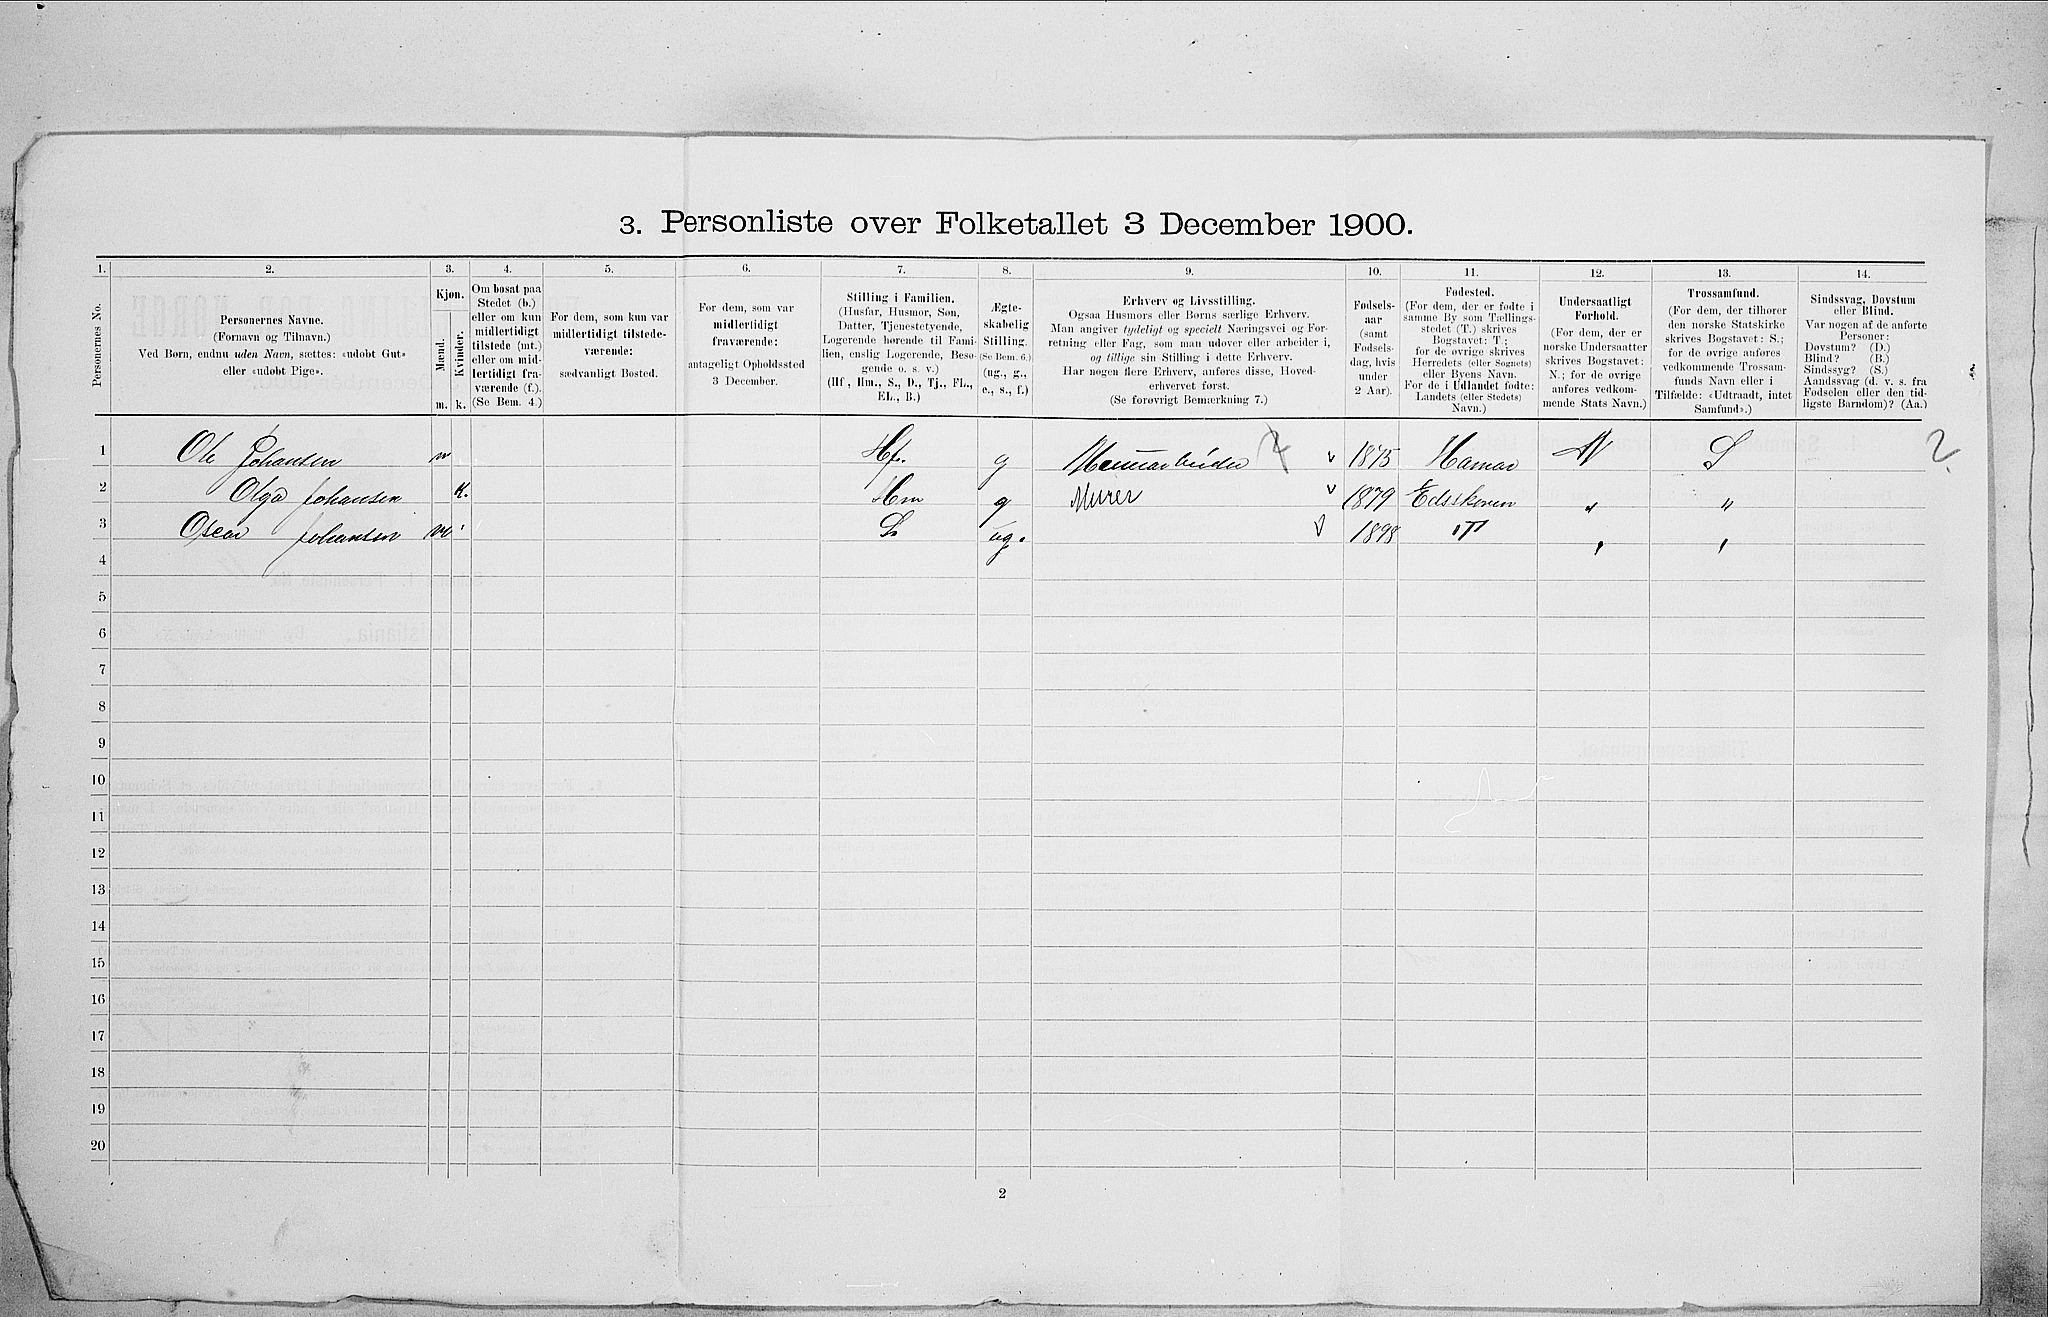 3. Personliste over Folketallet 3 December 1900.
1. 2. 3. 4. 5. 6. 7. 8. 9. 10. 11. 12. 13. 14.
Personernes No.
Personernes Navne.
(Fornavn og Tilnavn.)
Ved Børn, endnu uden Navn, sættes: «udøbt Gut»
eller «udøbt Pige».
Kjøn.
Mænd.
Kvinder.
m. k.
Om bosat paa
Stedet (b.)
eller om kun
midlertidigt
tilstede (mt.)
eller om mid-
lertidigt fra-
værende (f.).
(Se Bem. 4.)
For dem, som kun var
midlertidigt tilstede-
værende:
sædvanligt Bosted.
For dem, som var
midlertidigt
fraværende:
antageligt Opholdssted
3 December.
Stilling i Familien.
(Husfar, Husmor, Søn,
Datter, Tjenestetyende,
Logerende hørende til Fami-
lien, enslig Logerende, Besø-
gende o. s. v.)
(Hf, Hm., S., D., Tj., FL.,
EL., B.)
Ægte-
skabelig
Stilling.
(Se Bem. 6.)
(ug., g.,
e., s., f.)
Erhverv og Livsstilling.
Ogsaa Husmors eller Børns særlige Erhverv.
Man angiver tydeligt og specielt Næringsvei og For-
retning eller Fag, som man udøver eller arbeider i,
og tillige sin Stilling i dette Erhverv.
Har nogen flere Erhverv, anføres disse, Hoved-
erhvervet først.
(Se forøvrigt Bemærkning 7.)
Fødsels-
aar
(samt
Fødsels-
dag, hvis
under
2 Aar).
Fødested.
(For dem, der er fødte i
samme By som Tællings-
stedet (T.) skrives
Bogstavet: T.;
for de øvrige skrives
Herredets (eller Sognets)
eller Byens Navn.
For de i Udlandet fødte:
Landets (eller Stedets)
Navn.)
Undersaatligt
Forhold.
(For dem, der er
norske Undersaatter
skrives Bogstavet:
N.; for de øvrige
anføres vedkom-
mende Stats Navn.)
Trossamfund.
(For dem, der tilhører
den norske Statskirke
skrives Bogstavet: S.;
for de øvrige anføres
vedkommende Trossam-
funds Navn eller i
Tilfælde: «Udtraadt, intet
Samfund».)
Sindssvag, Døvstum
eller Blind.
Var nogen af de anførte
Personer:
Døvstum? (D.)
Blind? (B.)
Sindssyg? (S.)
Aandssvag (d. v. s. fra
Fødselen eller den tid-
ligste Barndom)? (Aa.)
1 Ole Johansen m Hf. g 1875 Hamar N S
2 Olga Johansen k. Hm g Murer 1879 Edsskoven " "
3 Oscar Johansen m S. ug. 1898 T " "
4
5
6
7
8
9
10
11
12
13
14
15
16
17
18
19
20
2